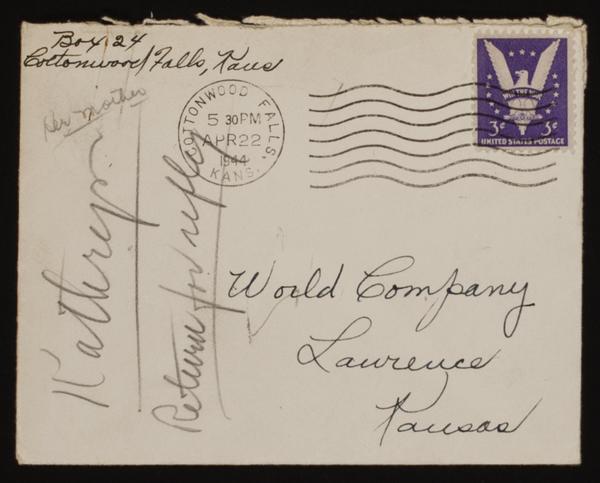 Box 24
Cottonwood Falls, Kans
Her mother
COTTONWOOD FALLS,
5 30PM
APR 22
1944
KANS.
WIN THE WAR
3¢ 3¢
UNITED STATES POSTAGE
Kathryn
Return for
World Company
Lawrence
Kansas